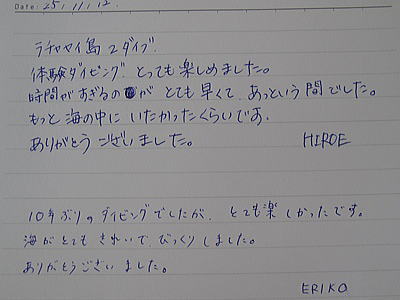 Date: 25.11.12.
ラチャヤイ島 2ダイブ.
体験ダイビング. とっても楽しめました。
時間がすぎるのが とても早くて、あっという間でした。
もっと 海の中に いたかったくらいです。
ありがとう ございました。 HIROE
10年ぶりの ダイビングでしたが、とても楽しかったです。
海がとても きれいで、びっくりしました。
ありがとうございました。
ERIKO